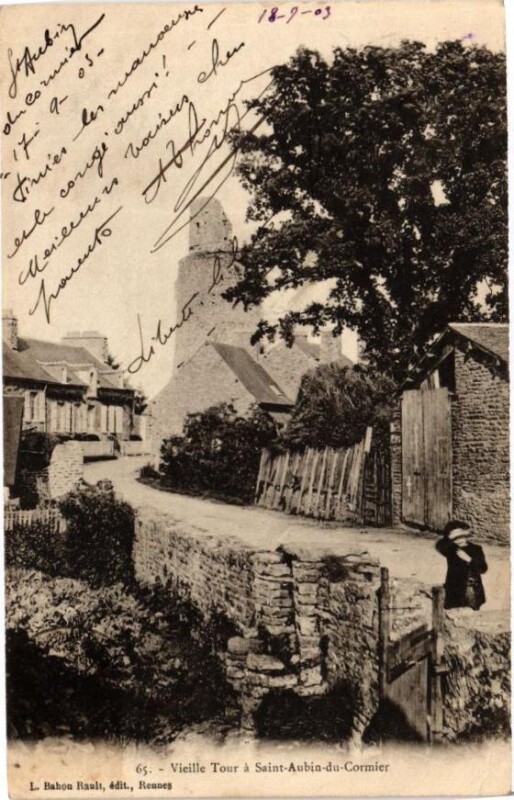 18-9-03
St Aubin
du cormier
17-9-03-
Finies les manœuvres
et le congé aussi!
Meilleurs baisers chers
parents
Alphonse
65. - Vieille Tour à Saint-Aubin-du-Cormier
L. Bahon Rault, édit., Rennes